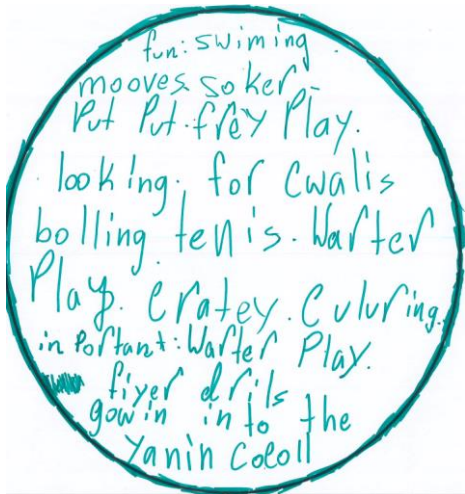 fun: swiming
mooves. soker-
Put Put. frey Play.
looking. for cwalis
bolling. tenis. Warter
Play. cratey. culuring.
in Portant: Warter Play.
fiyer drils
gowin in to the
yanin cololl